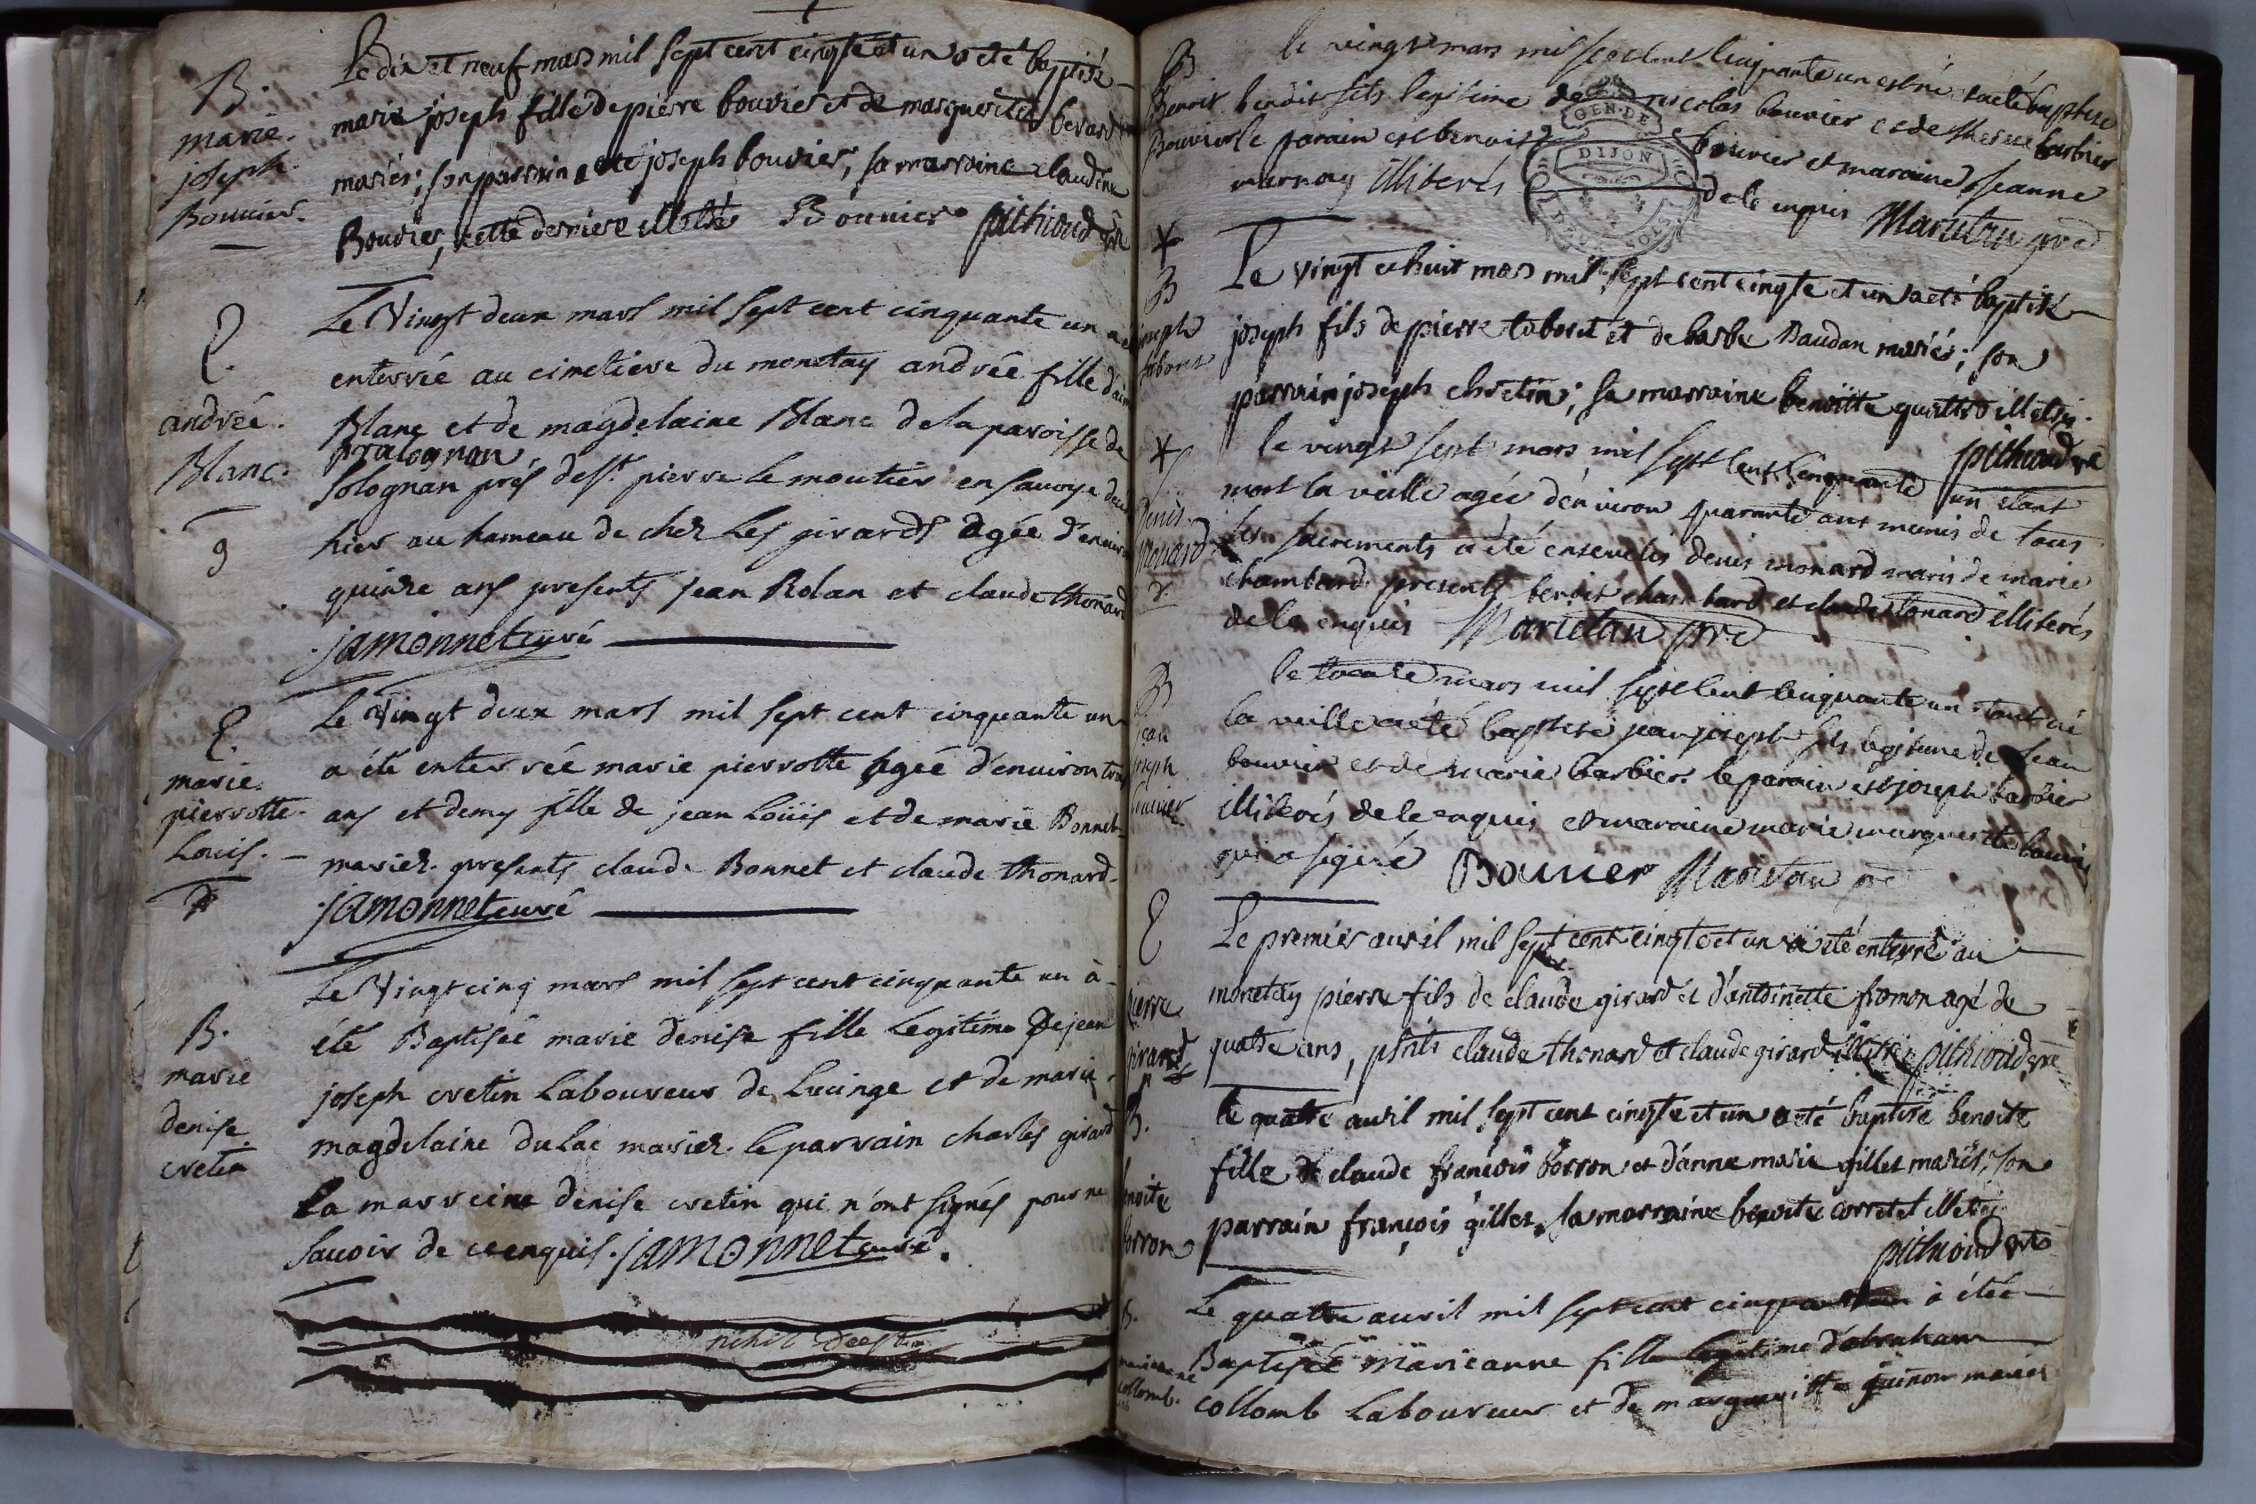 B.
marie
joseph
Bouvier.
Le dix et neuf mars mil sept cent cinqte et un a eté baptisé
marie joseph fille de pierre bouvier et de marguerite berard
mariés; son parrain a eté joseph bouvier, sa marraine claudine
Bouvier, cette derniere illetré Bouvier pithioud vre
E.
andrée.
Blanc.
9
Le Vingt deux mars mil sept cent cinquante un a été
enterrée au cimetiere du monetay andrée fille d'aimé
Blanc et de magdelaine Blanc de la paroisse de
pralognan
Solognan prés de St. pierre le moutier en Savoye
hier au hameau de chez Les girards agée d'environ
quinze ans presents jean Rolan et claude thonard
jamonnet curé
E.
marie
pierrotte
Louis.
Le Vingt deux mars mil sept cent cinquante un
a été enterrée marie pierrotte agée d'environ trois
ans et demy fille de jean Loüis et de marie Bonnet
mariez. presents claude Bonnet et claude thonard
jamonnet curé
B.
marie
denise
cretin
Le Vingt cinq mars mil sept cent cinquante un à
été Baptisée marie denise fille Legitime de jean
joseph cretin Laboureur de Lucinge et de marie
magdelaine du Lac mariez. le parrain charles girard
La marreine denise cretin qui n'ont signés pour ne
Savoir de ce enquis. jamonnet curé.
nihil deest
B
Benoit
Bouvier
le vingt mars mil sept cent cinquante un est né et a été baptisé
benoit fils legitime de nicolas bouvier et de barbier
le parain est benoit bouvier et maraine jeanne
marnay illiterés de le enquis Marietan pre
GEN. DE
DIJON
DEUX SOLS
B
joseph
taboret
Le vingt et huit mars mil sept cent cinqte et un a eté baptisé
joseph fils de pierre taboret et de barbe Daudan mariés; son
parrain joseph chretin; sa marraine benoitte illetrés.
pithioud vre
denis
monard
le vingt sept mars mil sept cent cinquante un étant
mort la veille agée d'environ quarante ans munis de tous
les sacrements a été ensevelis denis monard maris de marie
chambard presents benoit chambard et claude tonard illiterés
de le enquis Marietan pre
B
jean
joseph
bouvier
le trente mars mil sept cent cinquante un étant né
la veille a été baptisé jean joseph fils legitime de jean
bouvier et de marie barbier. le parain est joseph barbier
illiterés de le enquis et maraine marie marguerite bouvier
qui a signé Bouvier Marietan pre
E
pierre
girard
Le premier avril mil sept cent cinqte et un a eté enterré au
monetay pierre fils de claude girard et d'antoinette fromon agé de
quatre ans, psnts claude thonard et claude girard illetrés pithioud vre
B.
benoite
borron
Le quatre avril mil sept cent cinqte et un a eté baptisé benoite
fille de claude françois borron et d'anne marie gillet mariés, son
parrain françois gillet, sa marraine benoite corretel illetrés
pithioud vre
B.
marieanne
collomb.
Le quatre avril mil sept cent cinquante un à été
Baptisée marieanne fille legitime d'abraham
collomb Laboureur et de marguerite guinon mariez